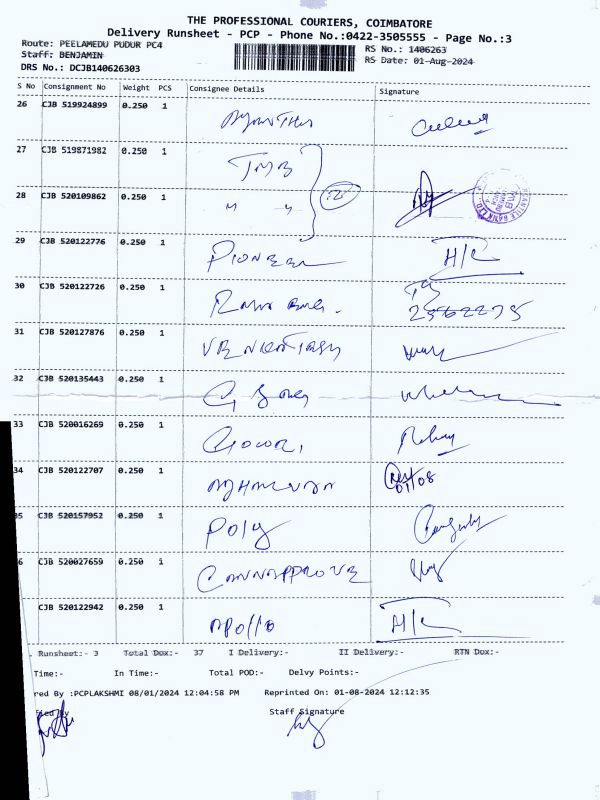 THE PROFESSIONAL COURIERS, COIMBATORE
Delivery Runsheet - PCP - Phone No.:0422-3505555 - Page No.:3
Route: PEELAMEDU PUDUR PC4
RS No.: 1406263
Staff: BENJAMIN
RS Date: 01-Aug-2024
DRS No.: DCJB140626303
S No Consignment No Weight PCS Consignee Details Signature
26 CJB 519924899 0.250 1
27 CJB 519871982 0.250 1 TMB
28 CJB 520109862 0.250 1 " "
29 CJB 520122776 0.250 1 PIONEER H/C
30 CJB 520122726 0.250 1
31 CJB 520127876 0.250 1
32 CJB 520135443 0.250 1
33 CJB 520016269 0.250 1 Gowri
34 CJB 520122707 0.250 1 01/08
35 CJB 520157952 0.250 1 Poly
6 CJB 520027659 0.250 1
CJB 520122942 0.250 1 Apollo H/C
. Runsheet:- 3 Total Dox:- 37 I Delivery:- II Delivery:- RTN Dox:-
Time:- In Time:- Total POD:- Delvy Points:-
red By :PCPLAKSHMI 08/01/2024 12:04:58 PM Reprinted On: 01-08-2024 12:12:35
Staff Signature